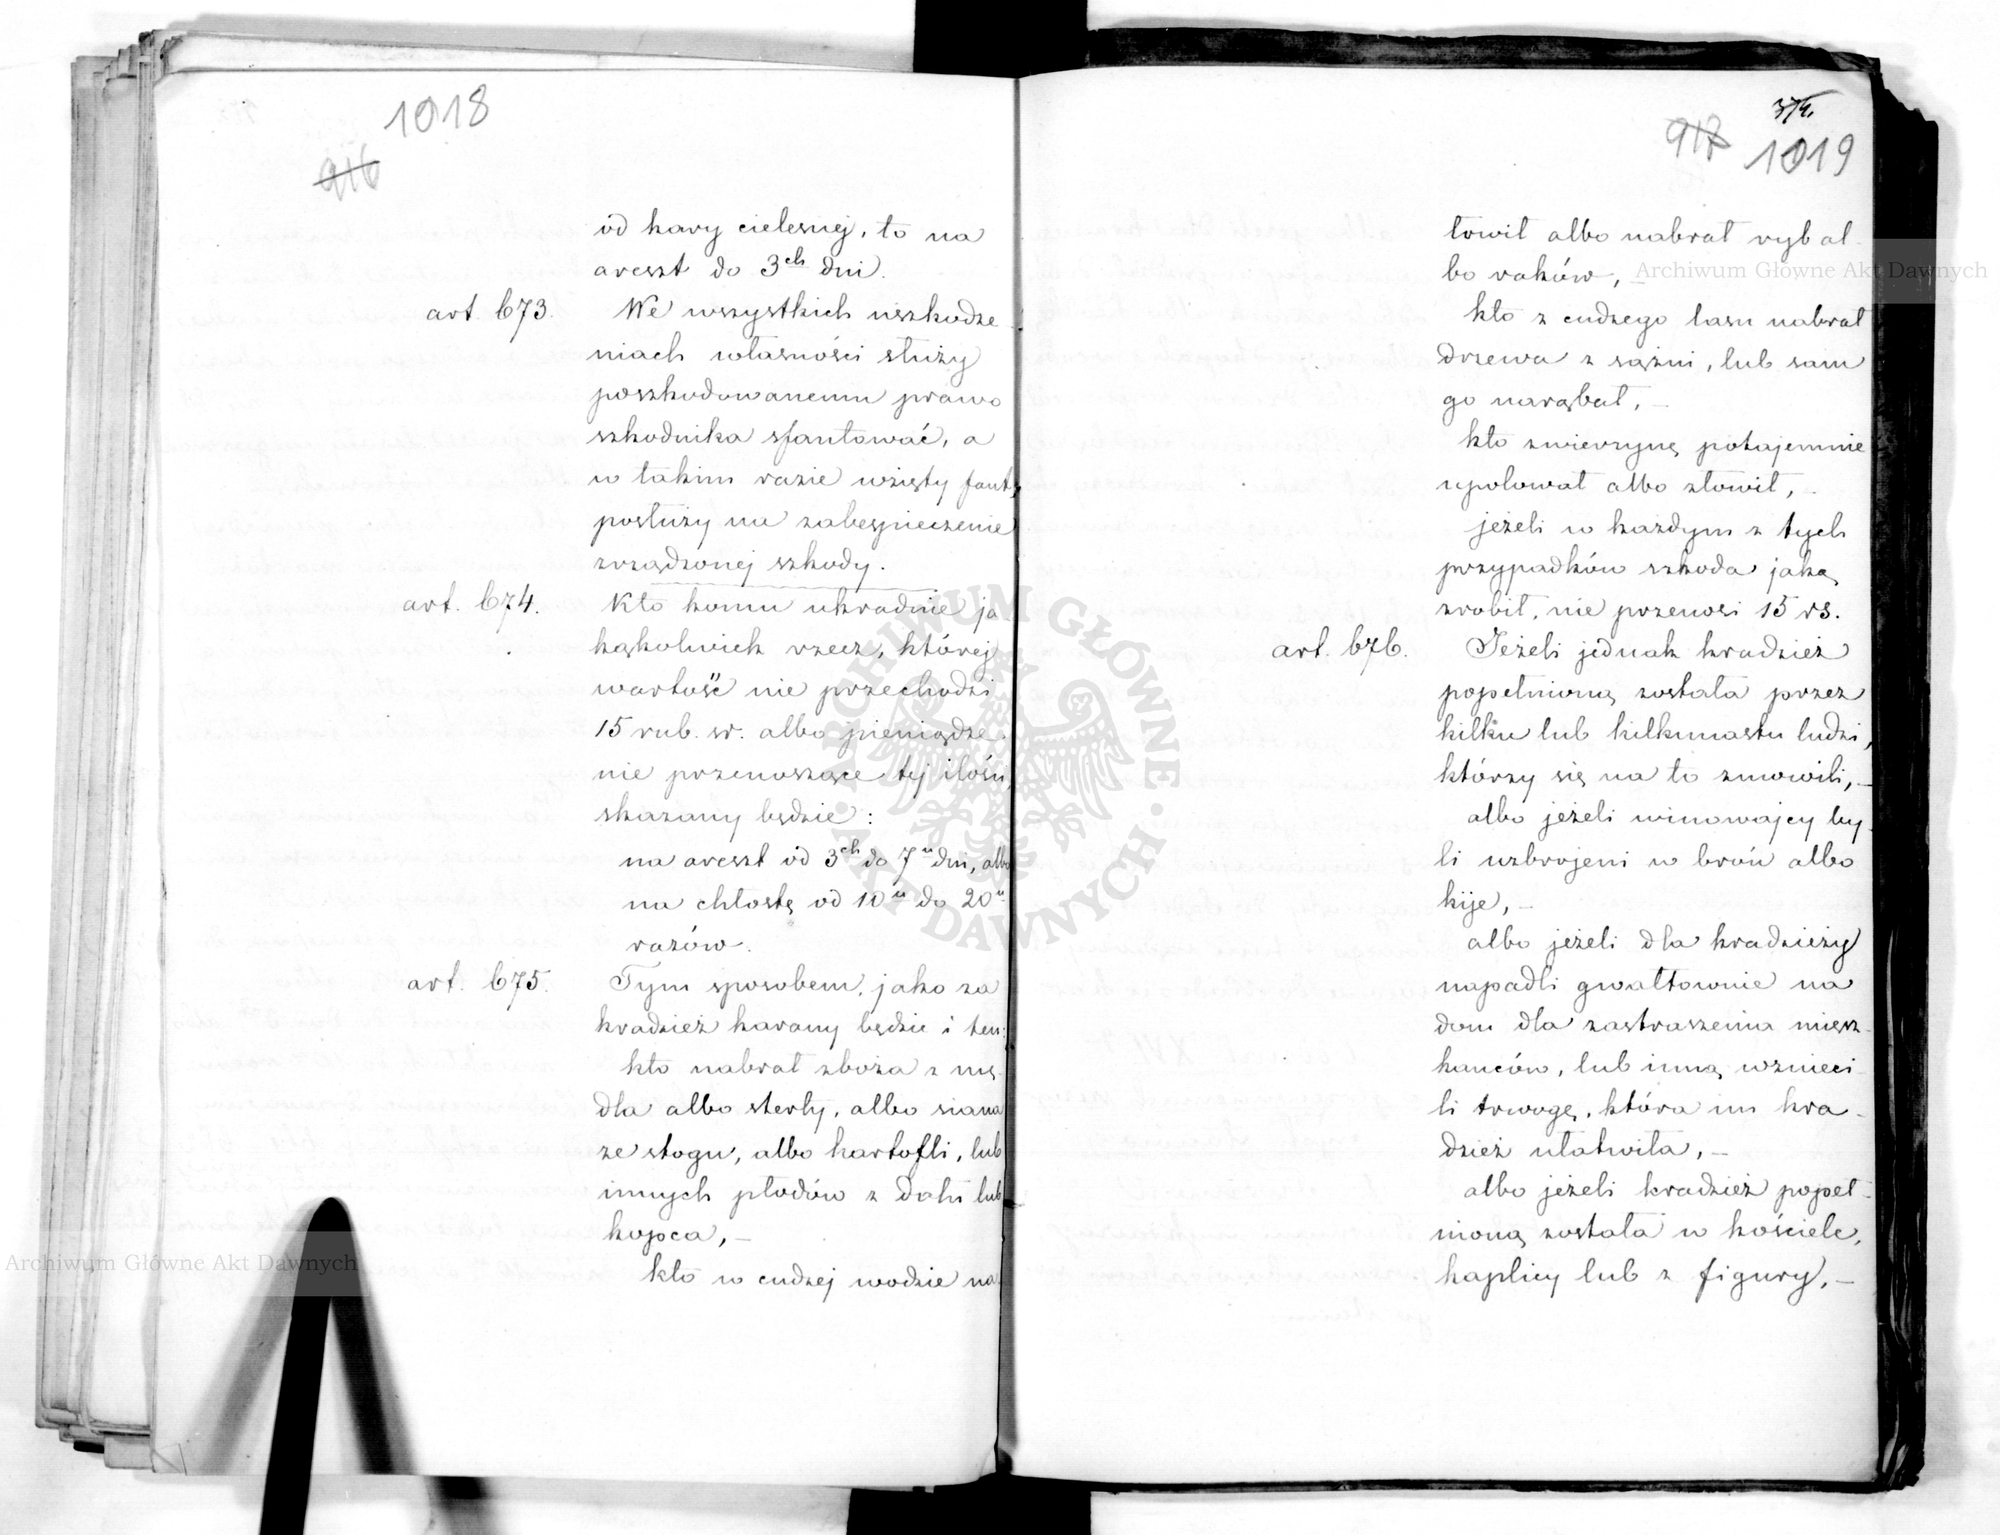 1018
916
od kary cielesnej, to na
areszt do 3ch dni.
art. 673.
We wszystkich uszkodze
niach własności służy
poszkodowanemu prawo
szkodnika sfantować, a
w takim razie wzięty fant,
posłuży na zabespieczenie
zrządzonej szkody.
art. 674.
Kto komu ukradnie ja
kąkolwiek rzecz, której
wartość nie przechodzi
15 rub. sr. albo pieniądze
nie przenoszące tej ilości,
skazany będzie:
na areszt od 3ch do 7u dni, albo
na chłostę od 10u do 20u
razów.
art. 675.
Tym sposobem, jako za
kradzież karany będzie i ten:
kto nabrał zboża z mę-
dla albo sterty, albo siana
ze stogu, albo kartofli, lub
innych płodów z dołu lub
kopca, –
kto w cudzej wodzie na
374.
917
1019
łowił albo nabrał ryb al-
bo raków, –
kto z cudzego lasu nabrał
drzewa z sążni, lub sam
go narąbał, –
kto zwierzynę potajemnie
upolował albo złowił, –
jeżeli w każdym z tych
przypadków szkoda jaką
zrobił, nie przenosi 15 rs.
art. 676.
Jeżeli jednak kradzież
popełnioną została przez
kilku lub kilkunastu ludzi,
którzy się na to zmówili, –
albo jeżeli winowajcy by-
li uzbrojeni w broń albo
kije, –
albo jeżeli dla kradzieży
napadli gwałtownie na
dom dla zastraszenia miesz-
kańców, lub inną wznieci-
li trwogę, która im kra-
dzież ułatwiła, –
albo jeżeli kradzież popeł-
nioną została w kościele,
kaplicy lub z figury, –
Archiwum Główne Akt Dawnych
Archiwum Główne Akt Dawnych
· ARCHIWUM GŁÓWNE · AKT DAWNYCH